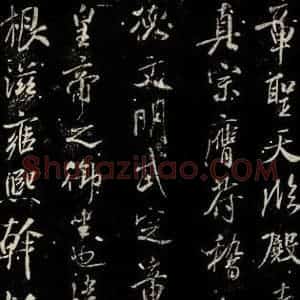 章聖天臨殿
真宗膺符稽
德文明武定章
皇帝之御坐也
根滋雍熙幹
Shufaziliao.com